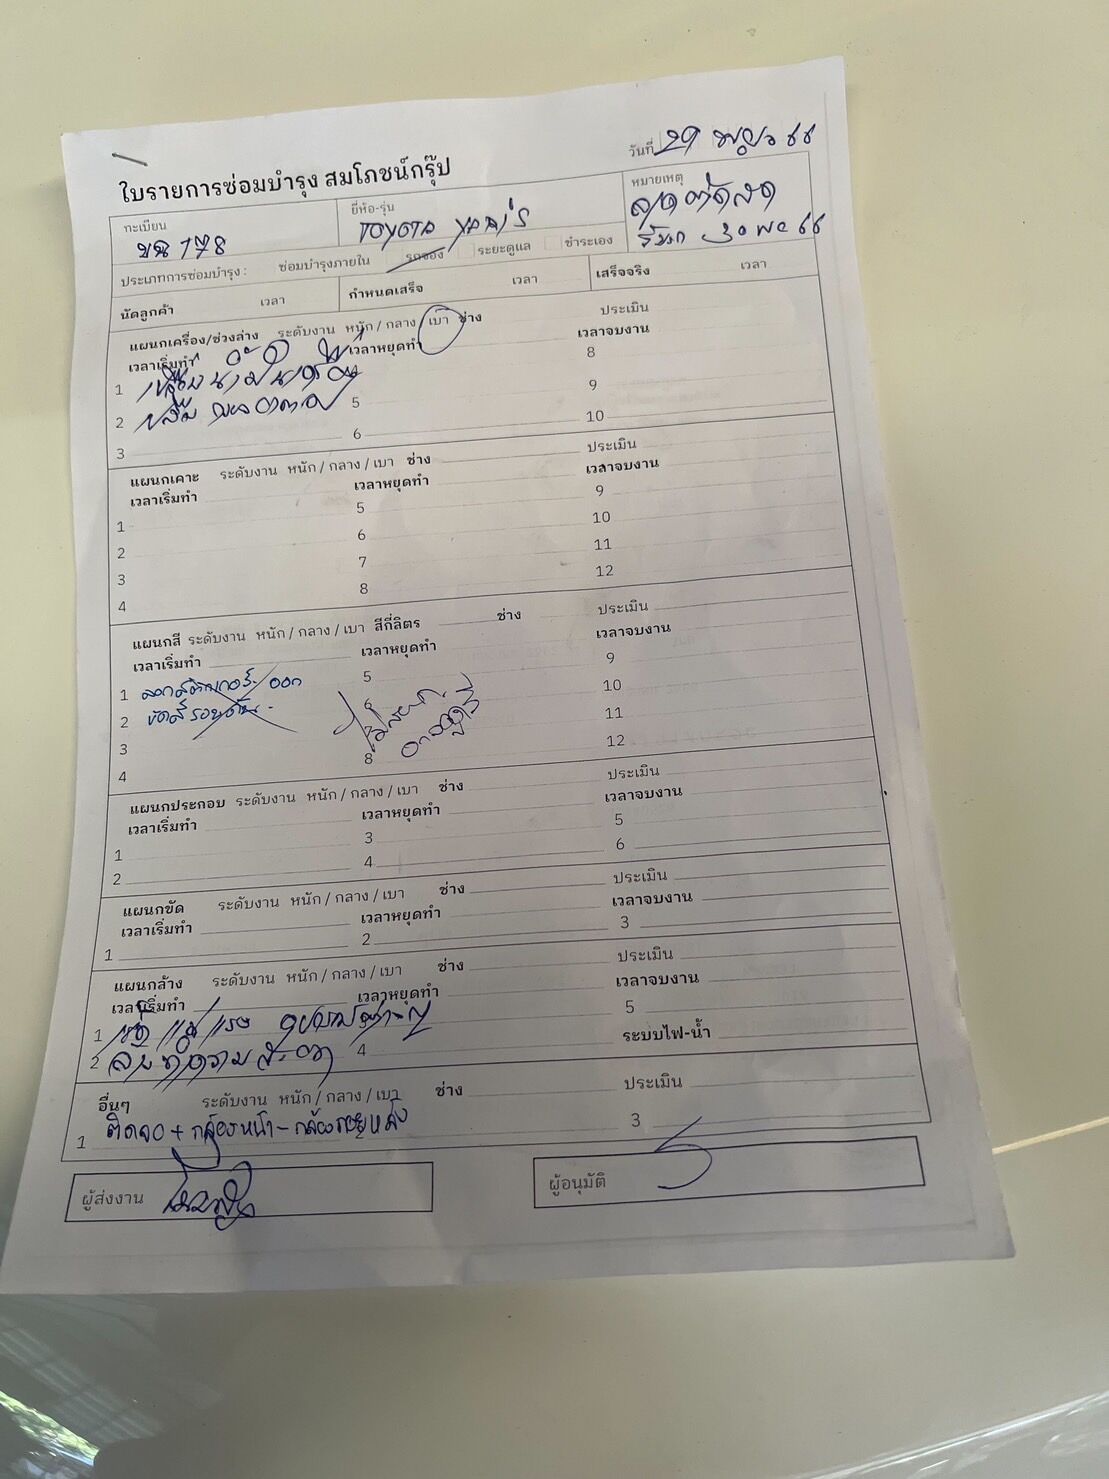 ใบรายการซ่อมบำรุง สมโภชน์กรุ๊ป
วันที่ 29 พฤษ 66
ทะเบียน ยี่ห้อ-รุ่น หมายเหตุ
ขฉ 178 TOYOTA YARIS
รับรถ 30 พย 66
ประเภทการซ่อมบำรุง : ซ่อมบำรุงภายใน รถจอง ระยะดูแล ชำระเอง
นัดลูกค้า เวลา กำหนดเสร็จ เวลา เสร็จจริง เวลา
แผนกเครื่อง/ช่วงล่าง ระดับงาน หนัก / กลาง / เบา ช่าง ประเมิน
เวลาเริ่มทำ เวลาหยุดทำ เวลาจบงาน
1 น้ำมันเครื่อง 8
2 5 9
3 6 10
แผนกเคาะ ระดับงาน หนัก / กลาง / เบา ช่าง ประเมิน
เวลาเริ่มทำ เวลาหยุดทำ เวลาจบงาน
1 5 9
2 6 10
3 7 11
4 8 12
แผนกสี ระดับงาน หนัก / กลาง / เบา สีกี่ลิตร ช่าง ประเมิน
เวลาเริ่มทำ เวลาหยุดทำ เวลาจบงาน
1 ลอกสติกเกอร์ ออก 5 9
2 ขัดสีรอบคัน 6 10
3 11
4 8 12
แผนกประกอบ ระดับงาน หนัก / กลาง / เบา ช่าง ประเมิน
เวลาเริ่มทำ เวลาหยุดทำ เวลาจบงาน
1 3 5
2 4 6
แผนกขัด ระดับงาน หนัก / กลาง / เบา ช่าง ประเมิน
เวลาเริ่มทำ เวลาหยุดทำ เวลาจบงาน
1 2 3
แผนกล้าง ระดับงาน หนัก / กลาง / เบา ช่าง ประเมิน
เวลาเริ่มทำ เวลาหยุดทำ เวลาจบงาน
1 5
2 ล้างทำความสะอาด 4 ระบบไฟ-น้ำ
อื่นๆ ระดับงาน หนัก / กลาง / เบา ช่าง ประเมิน
1 ติดจอ + กล้องหน้า - กล้องถอยหลัง 3
ผู้ส่งงาน ผู้อนุมัติ